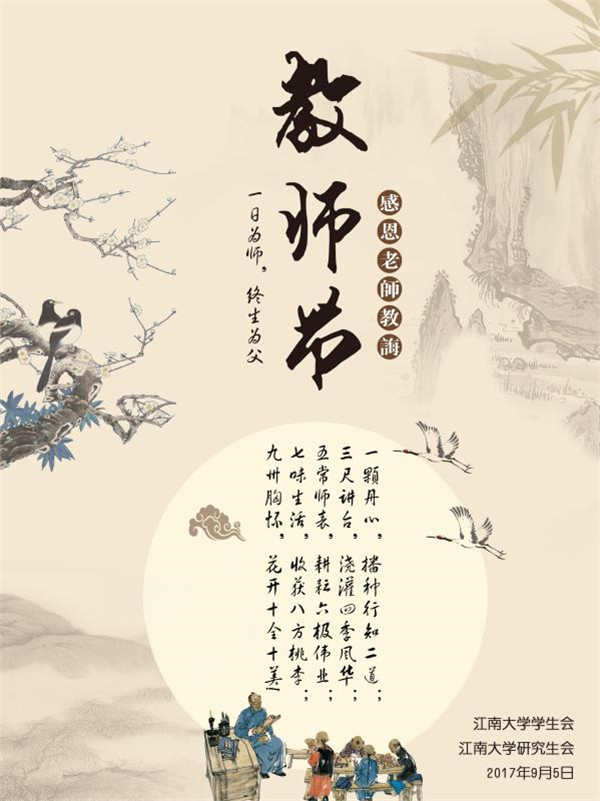 教师节
感恩老師教誨
一日为师，终生为父
一颗丹心，播种行知二道；
三尺讲台，浇灌四季风华；
五常师表，耕耘六极伟业；
七味生活，收获八方桃李；
九州胸怀，花开十全十美！
江南大学学生会
江南大学研究生会
2017年9月5日